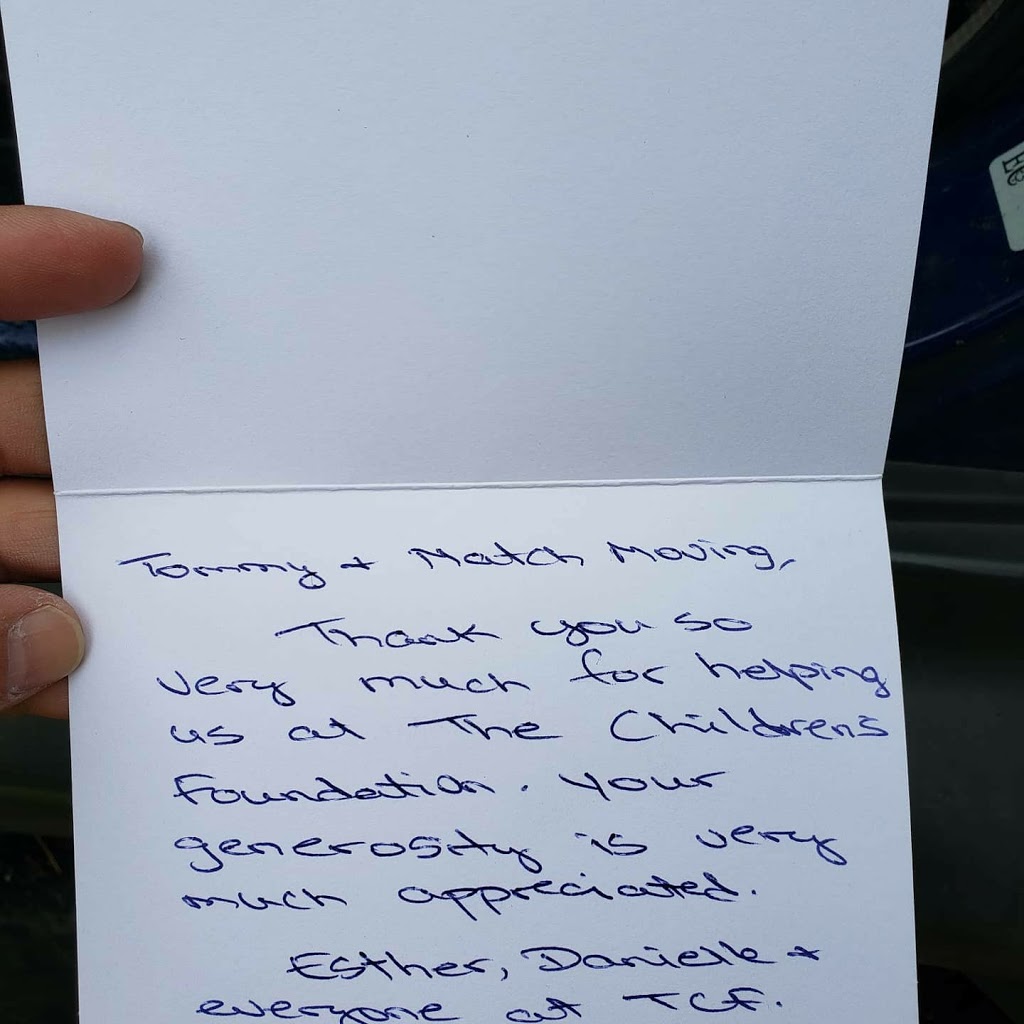 Tommy + Match Moving,
Thank you so
very much for helping
us at The Children's
Foundation. Your
generosity is very
much appreciated.
Esther, Danielle +
everyone at TCF.